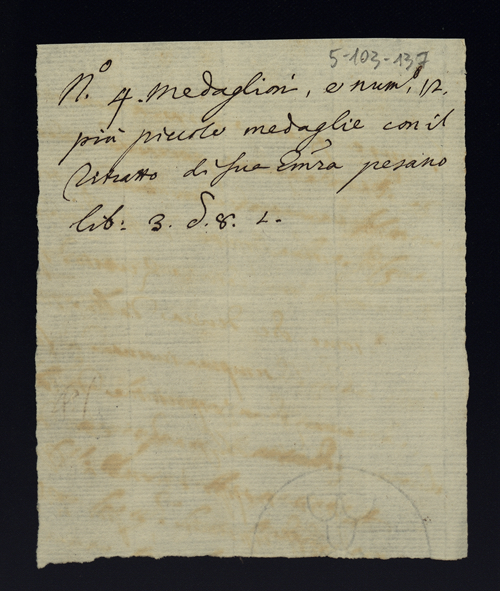 5-103-137
N.o 4. Medaglioni, e num.o 12.
più piccole medaglie con il
Ritratto di Sua Emza pesano
lib: 3. 8. L.